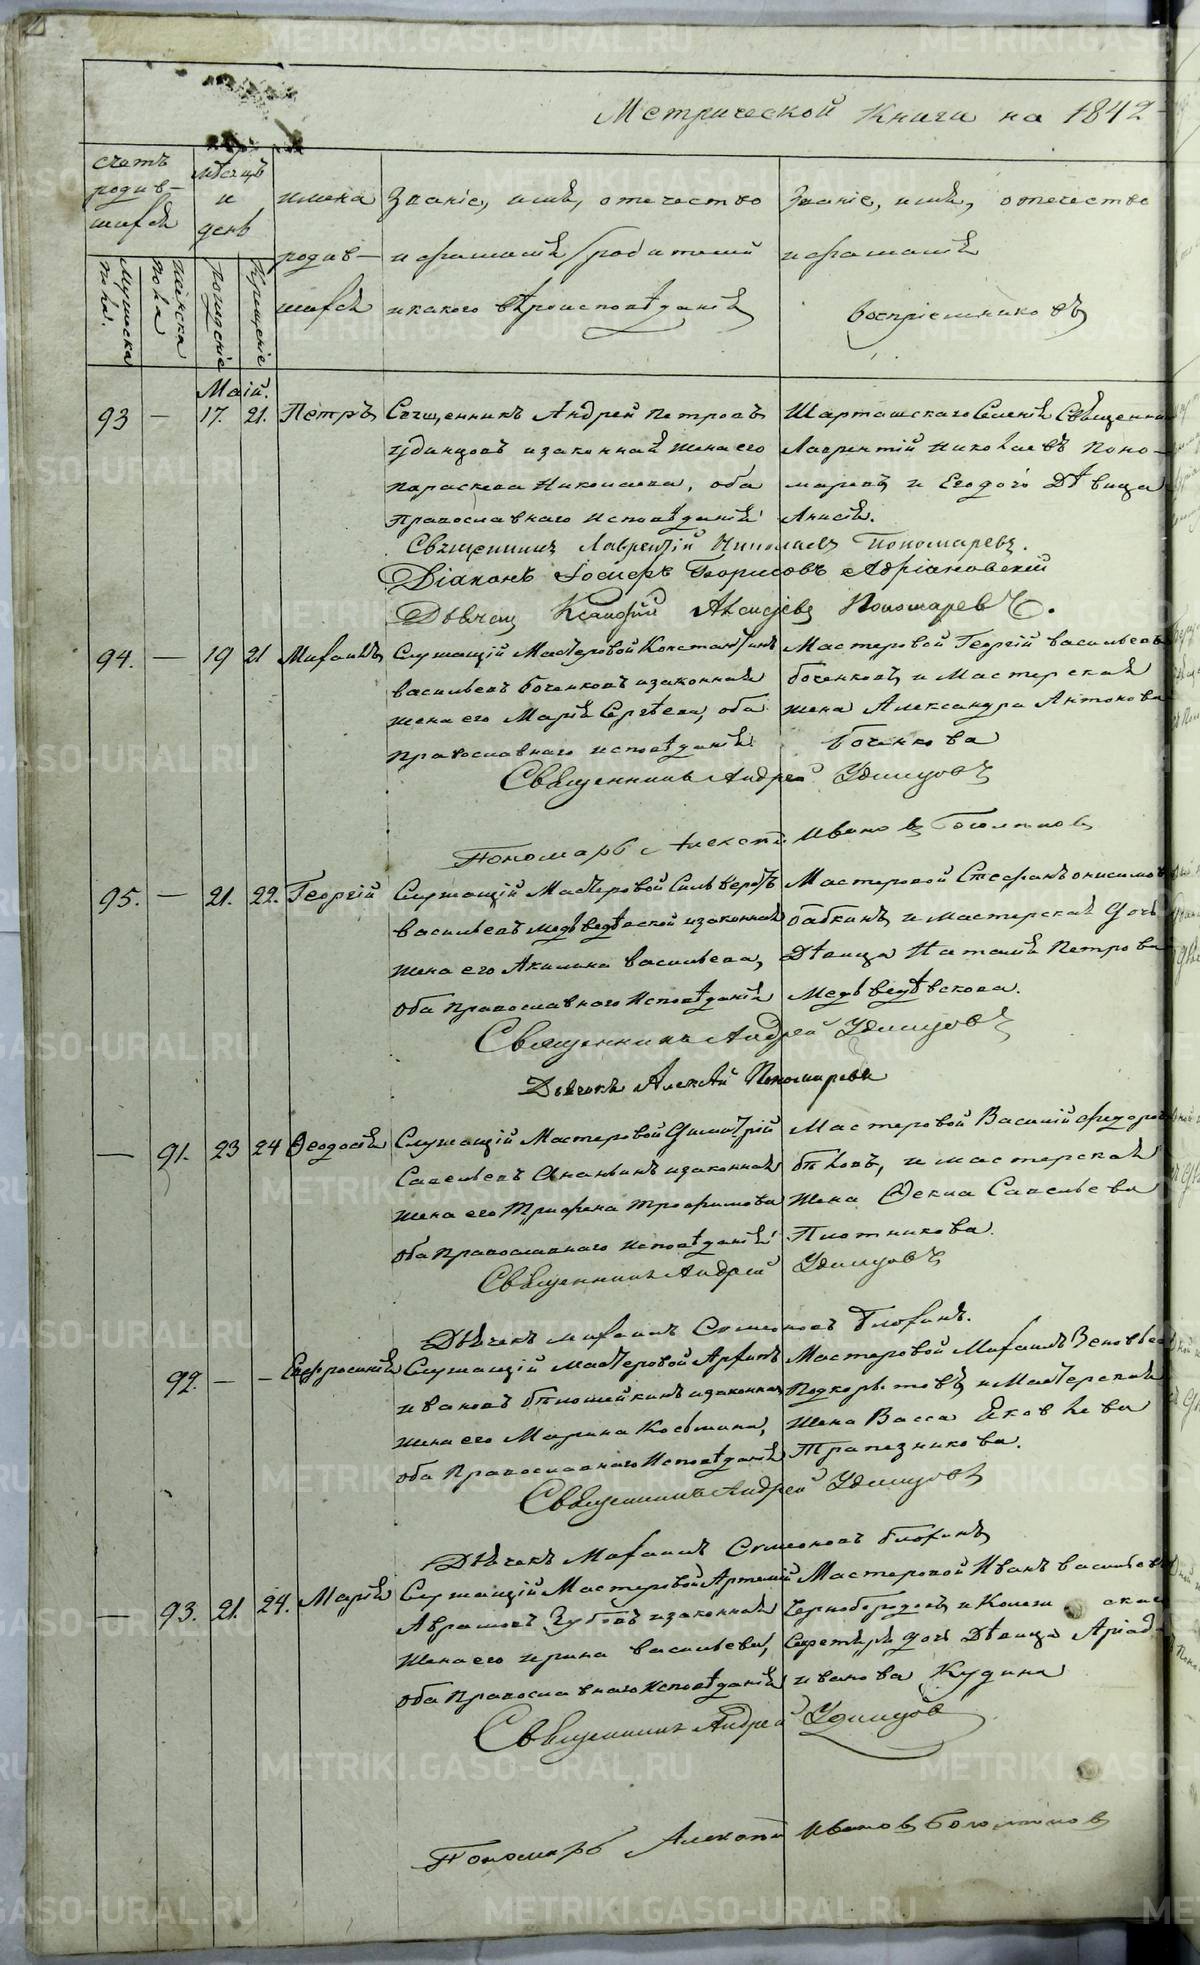 Метрической Книги на 1842
счетъ родив-шихся
мѣсяцъ и день
имена родив-шихся
Званіе, имя, отечество и фамилія родителей и какого вѣроисповѣданія
Званіе, имя, отечество и фамилія воспріемниковъ
Мужеска пола.
Женска пола
Рожденіе
Крещеніе
Маія.
93 — 17. 21. Петръ
Священникъ Андрей Петровъ
Удинцовъ и законная жена его
Параскева Николаева, оба
Православнаго исповѣданія
Шарташскаго Селенія Священник
Лаврентій Николаевъ Поно-
маревъ и Его дочь Дѣвица
Анисія.
Священникъ Лаврентій Николаевъ Пономаревъ.
Діаконъ Іосифъ Георгіовъ Адріановскій
Дьячец Алексѣевъ Пономаревъ.
94. — 19 21 Михаилъ
Служащій Мастеровой Константинъ
васильевъ боченковъ и законная
жена его Марія Сергѣева, оба
Православнаго исповѣданія
Мастеровой Георгій васильевъ
боченковъ и Мастерская
жена Александра Антонова
боченкова
Священникъ Андрей Удинцовъ
Пономарь Алексѣй Ивановъ Боголѣповъ
95. — 21. 22. Георгій
Служащій Мастеровой Сильверстъ
васильевъ медьведевской и законная
жена его Акилина васильева,
оба православнаго Исповѣданія
Мастеровой Стефанъ онисимовъ
бабкинъ и мастерская дочь
Дѣвица Наталія Петрова
Медьведѣвскова.
Священникъ Андрей Удинцовъ
Дьячекъ Алексѣй Пономаревъ
— 91. 23 24 Ѳеодосія
Служащій Мастеровой Димитрій
Савельевъ Ананьинъ и законная
жена его Трифена Трофимова
оба Православнаго исповѣданія
Мастеровой Василій Федоровъ
бѣловъ, и мастерская
жена Ѳекла Савельева
Плотникова.
Священникъ Андрей Удинцовъ
Дьячекъ михаилъ Симеоновъ Блохинъ.
92. — — Евфросинія
Служащій Мастеровой Архипъ
ивановъ и законная
жена его Марина Косьмина,
оба Православнаго Исповѣданія
Мастеровой Михаилъ Зеновьевъ
Подкорытовъ и Мастерская
жена Васса Яковлева
Трапезникова.
Священникъ Андрей Удинцовъ
Дьячекъ Михаилъ Симеоновъ блохинъ
— 93. 21. 24. Марія
Служащій Мастеровой Артемій
Аврамовъ Зубовъ и законная
Жена его ирина васильева,
оба Православнаго Исповѣданія
Мастеровой Иванъ васильевъ
Чернобородовъ и Колеж
Секретаря дочь Дѣвица Аріад-
иванова Кудина
Священникъ Андрей Удинцовъ
Пономарь Алексѣй Ивановъ Боголѣповъ
METRIKI.GASO-URAL.RU